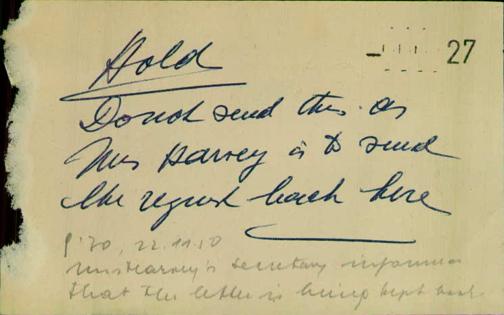 27
Hold
Do not send this as
Mrs Harvey is to send
the request back here
22.11.50
Mrs Harvey's secretary informed
that the letter is being kept back